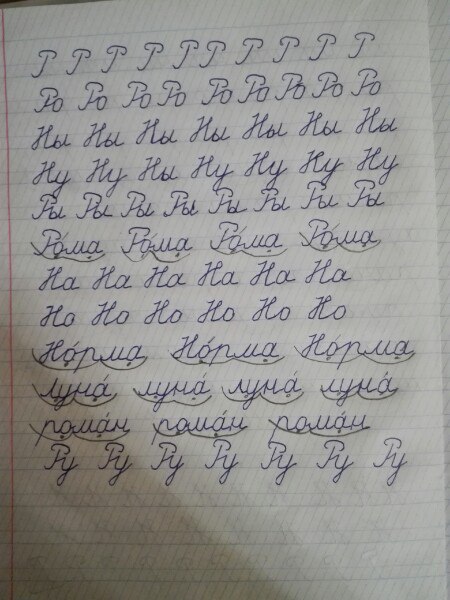 Р Р Р Р Р Р Р Р Р Р
Ро Ро Ро Ро Ро Ро Ро Ро Ро
Ны Ны Ны Ны Ны Ны Ны
Ну Ну Ны Ну Ну Ну Ну
Ры Ры Ры Ры Ры Ры Ры Ры
Ро́ма Ро́ма Ро́ма Ро́ма
На На На На На На
Но Но Но Но Но Но
Но́рма Но́рма Но́рма
луна́ луна́ луна́ луна́
рома́н рома́н рома́н
Ру Ру Ру Ру Ру Ру Ру